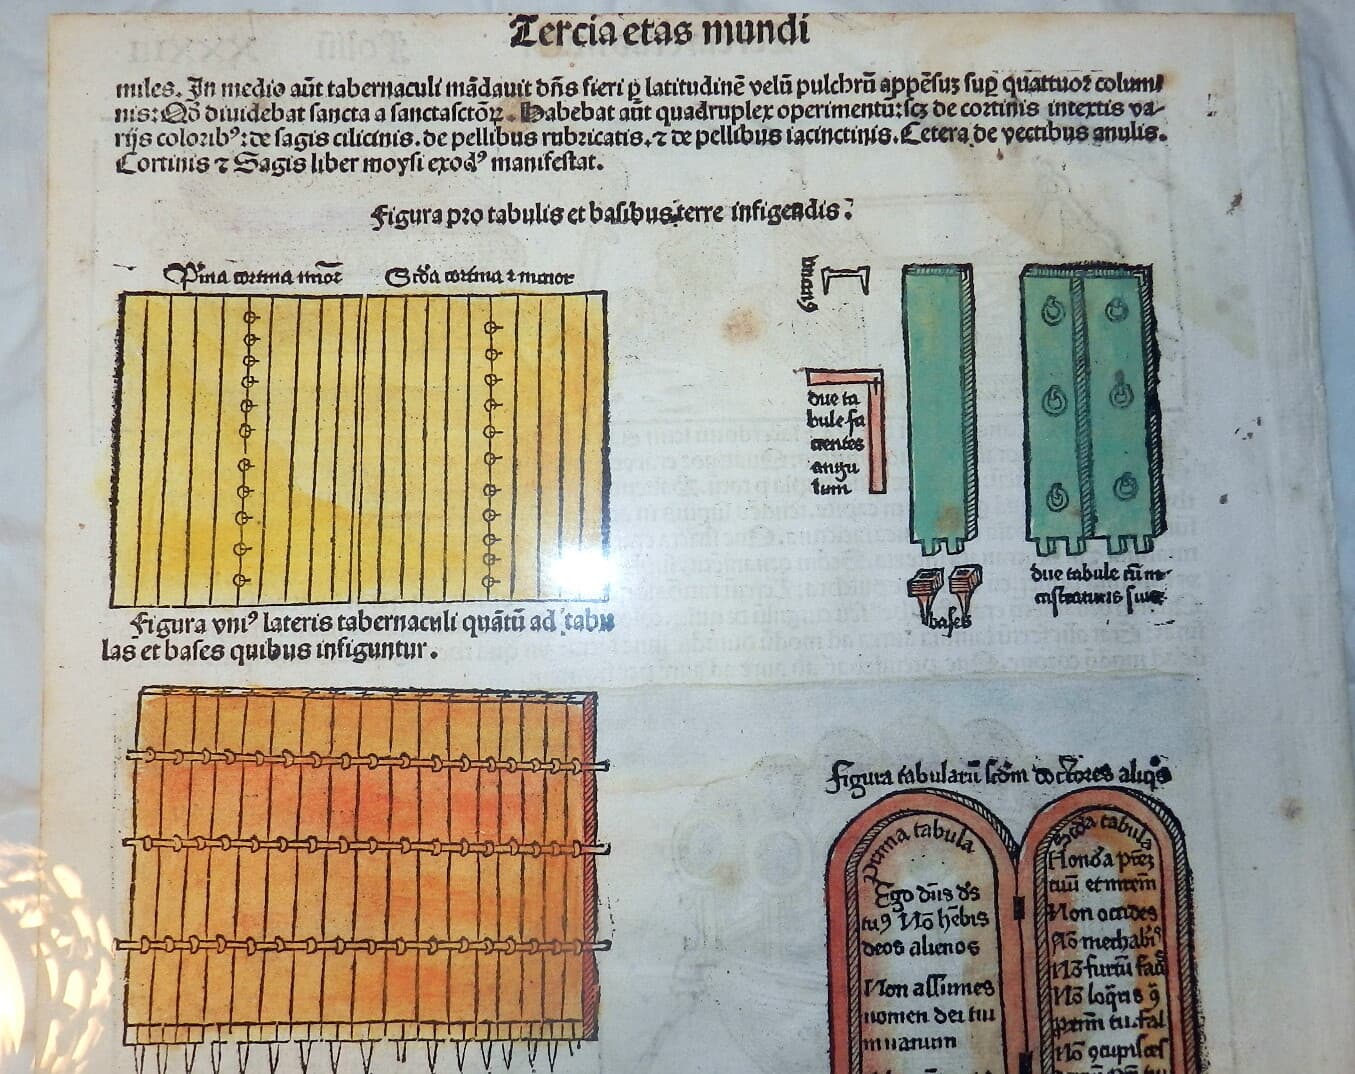 Tercia etas mundi
miles. In medio aūt tabernaculi mādauit dn̄s fieri ꝑ latitudinē velū pulchrū appēsuꝫ suꝑ quattuor colum
nis: Qō diuidebat sancta a sanctasctōꝝ. Habebat aūt quadruplex operimentū: scꝫ de cortinis intextis va-
rijs coloribꝰ: de sagis cilicinis. de pellibus rubricatis. ⁊ de pellibus iacinctinis. Cetera de vectibus anulis.
Cortinis ⁊ Sagis liber moysi exodꝰ manifestat.
Figura pro tabulis et basibus terre infigendis.
Prīa cortina mīor Scd̄a cortina ⁊ minor
due ta
bule fa
cientes
angu
lum
bases
due tabule cū in-
castraturis suis
Figura vniꝰ lateris tabernaculi quātū ad tabu
las et bases quibus infiguntur.
Figura tabularū scd̄m doctores aliqͦs
Prima tabula
Ego dn̄s ds̄
tuꝰ Nō hēbis
deos alienos
Non assumes
nomen dei tui
in uanum
Scd̄a tabula
Honora
tuū et mrēm
Non occides
Nō mechabꝭ
Nō furtū
Nō
tuū fal
Nō ꝯcupisces